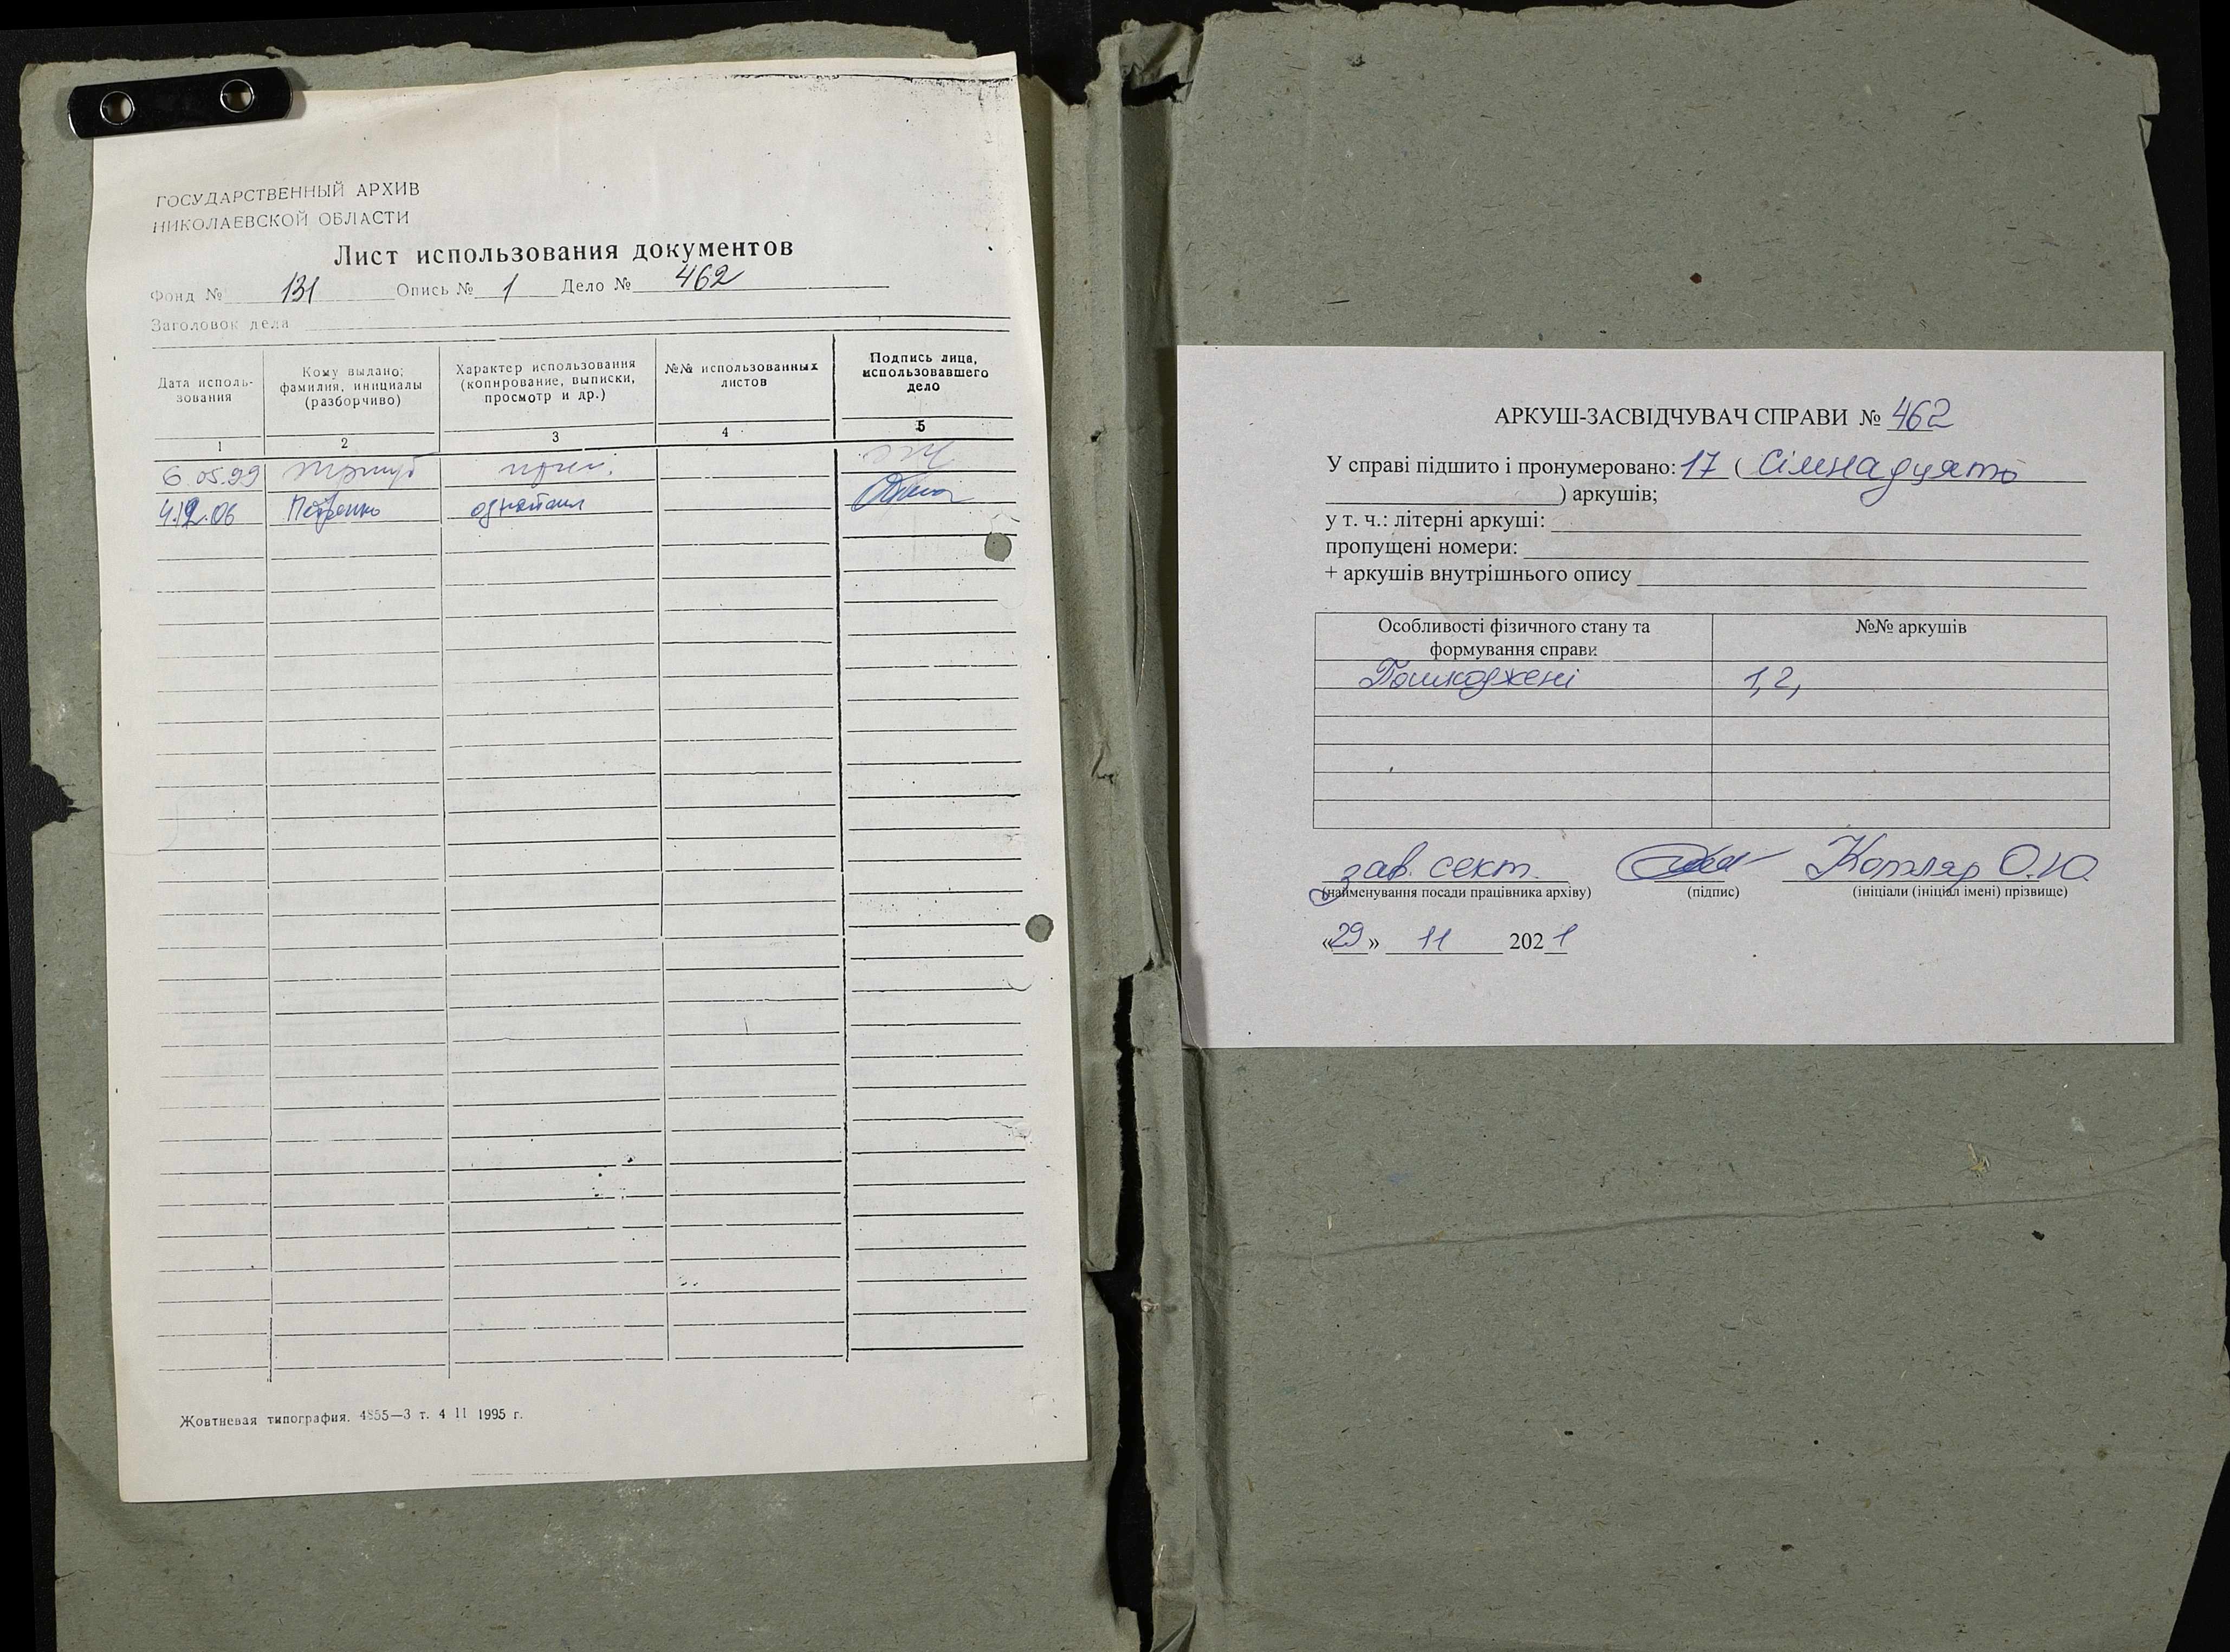 ГОСУДАРСТВЕННЫЙ АРХИВ
НИКОЛАЕВСКОЙ ОБЛАСТИ
Лист использования документов
Фонд № 131 Опись № 1 Дело № 462
Заголовок дела
Дата исполь-
зования
Кому выдано;
фамилия, инициалы
(разборчиво)
Характер использования
(копирование, выписки,
просмотр и др.)
№№ использованных
листов
Подпись лица,
использовавшего
дело
1 2 3 4 5
6.05.99
4.12.06
Жовтневая типография. 4855—3 т. 4 II 1995 г.
АРКУШ-ЗАСВІДЧУВАЧ СПРАВИ № 462
У справі підшито і пронумеровано: 17 ( Сімнадцять
) аркушів;
у т. ч.: літерні аркуші:
пропущені номери:
+ аркушів внутрішнього опису
Особливості фізичного стану та
формування справи
№№ аркушів
Пошкоджені 1,2,
зав. сект. Котляр О.Ю.
(найменування посади працівника архіву) (підпис) (ініціали (ініціал імені) прізвище)
«29» 11 2021